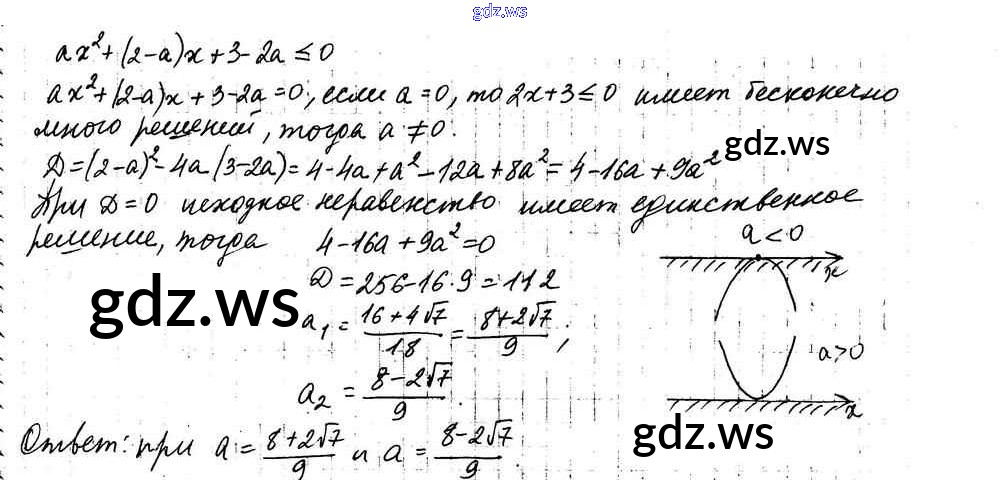 gdz.ws
ax² + (2-a)x + 3-2a ≤ 0
ax² + (2-a)x + 3-2a = 0, если a = 0, то 2x+3 ≤ 0 имеет бесконечно
много решений, тогда a ≠ 0.
gdz.ws
D = (2-a)² - 4a(3-2a) = 4-4a+a²-12a+8a² = 4-16a+9a²
При D = 0 исходное неравенство имеет единственное
решение, тогда 4-16a+9a² = 0
a < 0
x
D = 256-16·9 = 112
gdz.ws
a₁ = (16+4√7)/18 = (8+2√7)/9 ;
a > 0
a₂ = (8-2√7)/9 .
x
gdz.ws
Ответ: при a = (8+2√7)/9 и a = (8-2√7)/9 .